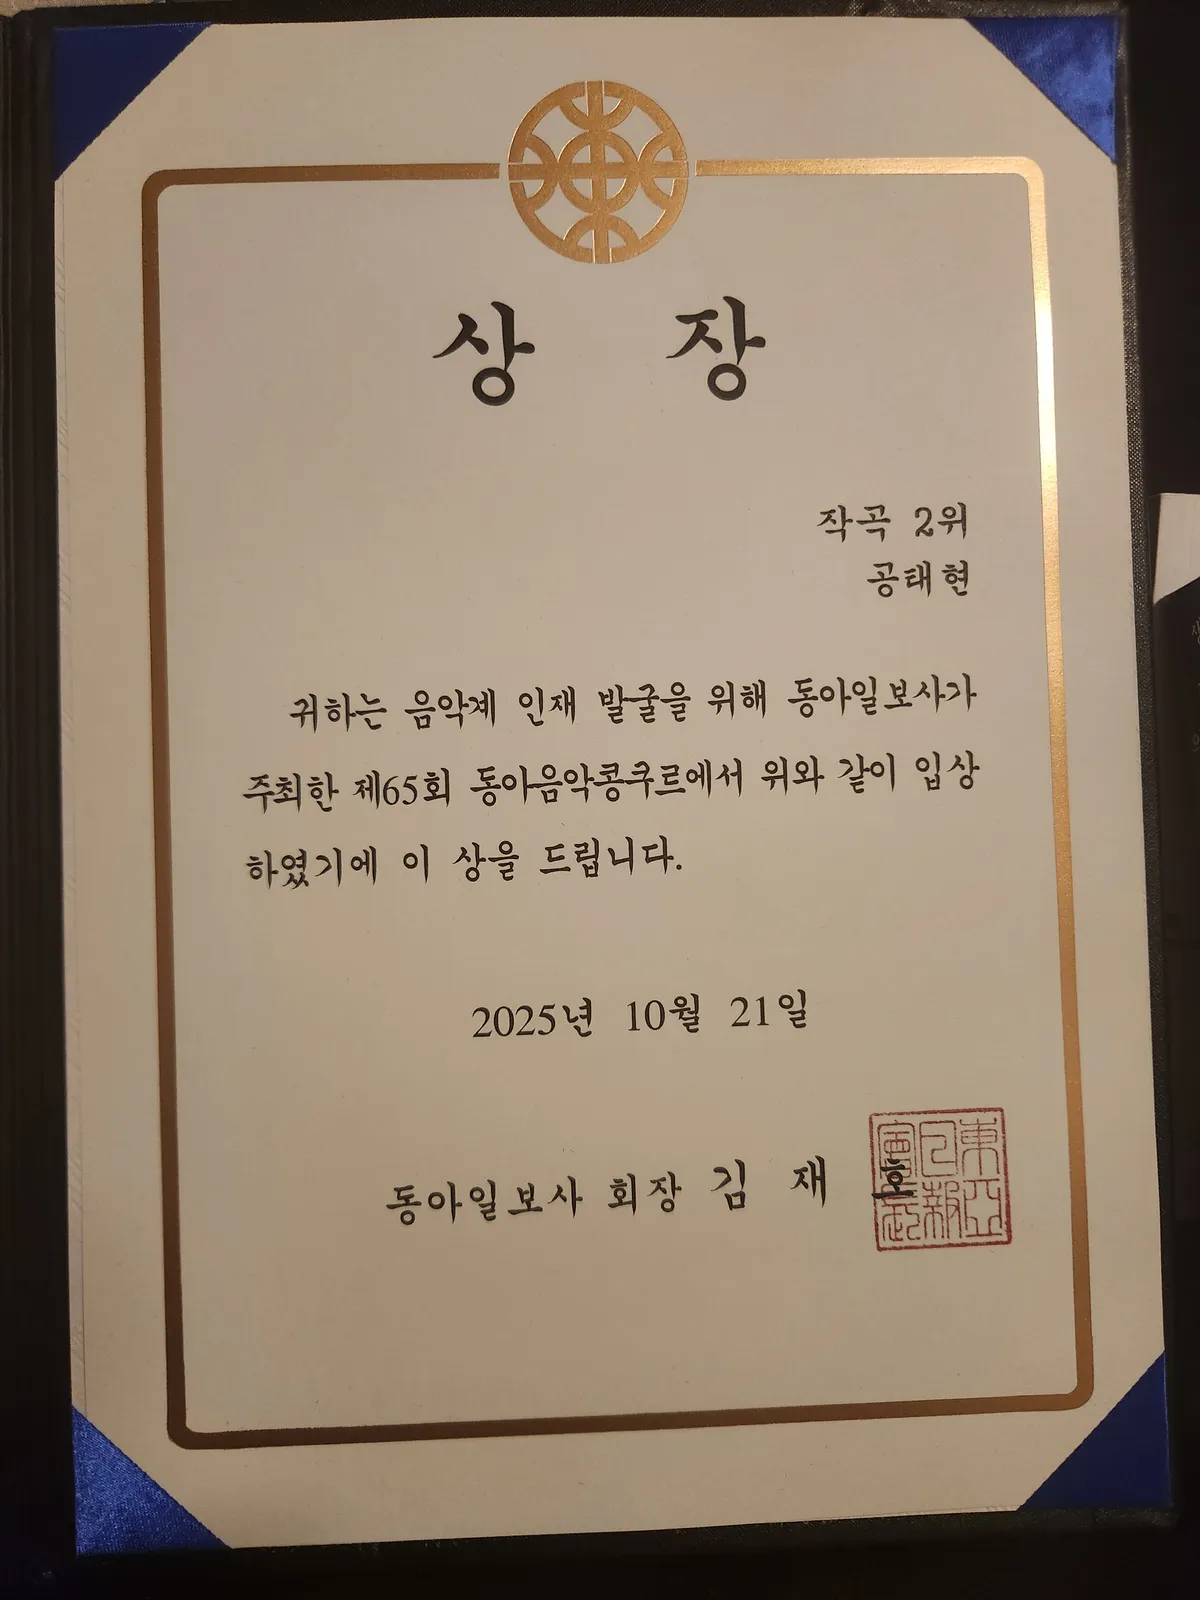 상 장
작곡 2위
공태현
귀하는 음악계 인재 발굴을 위해 동아일보사가
주최한 제65회 동아음악콩쿠르에서 위와 같이 입상
하였기에 이 상을 드립니다.
2025년 10월 21일
동아일보사 회장 김 재 호
東亞日報